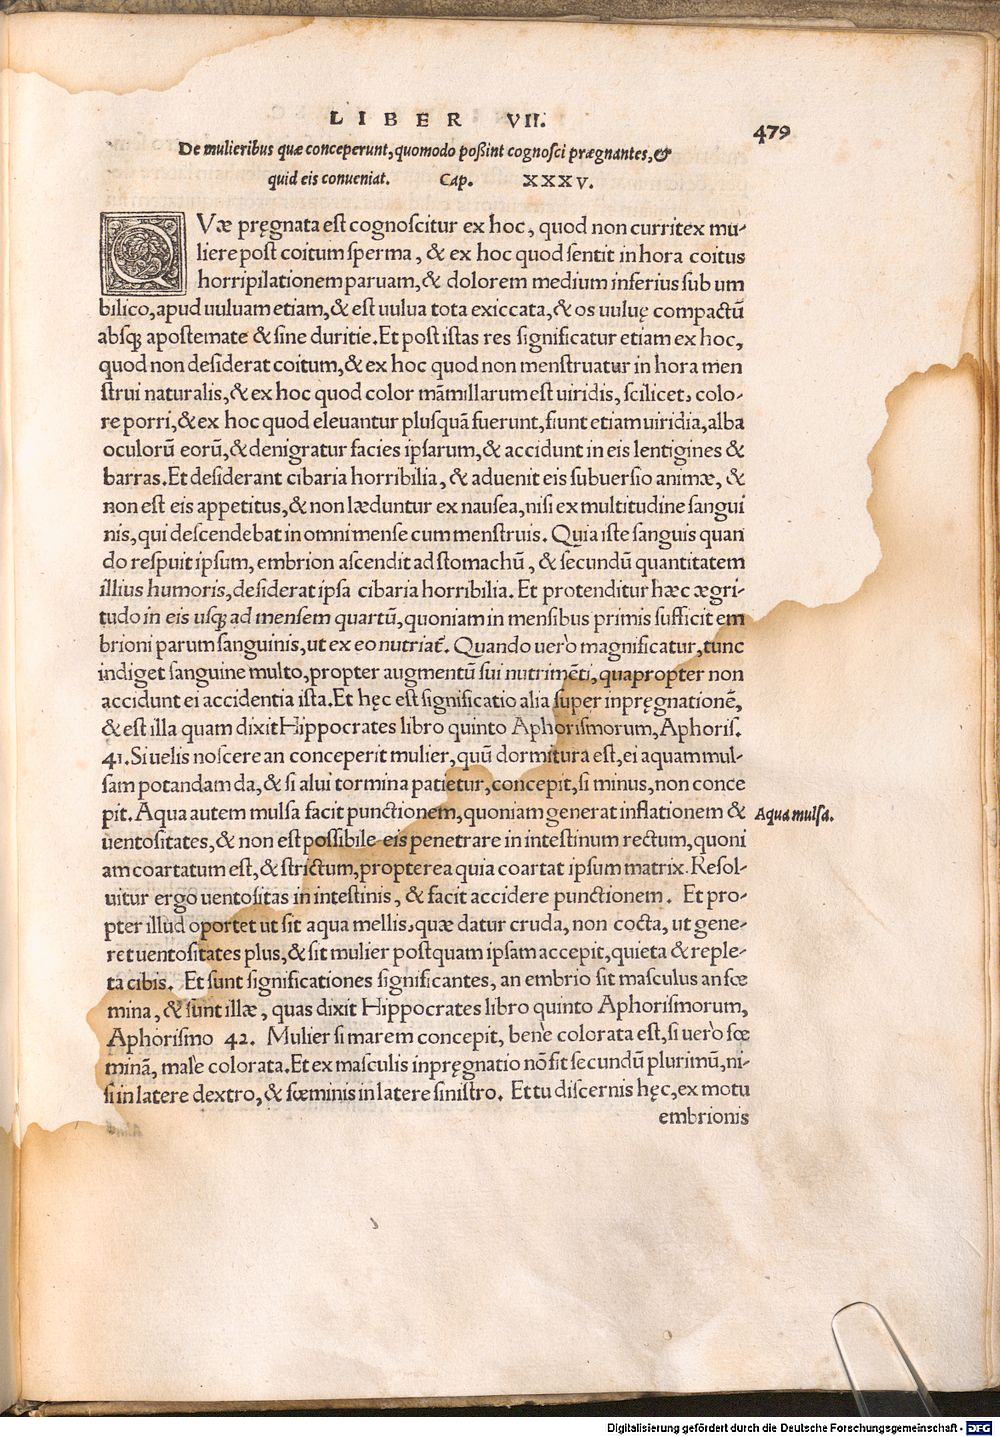 LIBER VII.
479
De mulieribus quæ conceperunt, quomodo poßint cognosci prægnantes, &
quid eis conueniat. Cap. XXXV.
QVæ pręgnata est cognoscitur ex hoc, quod non currit ex mu-
liere post coitum sperma, & ex hoc quod sentit in hora coitus
horripilationem paruam, & dolorem medium inferius sub um
bilico, apud uuluam etiam, & est uulua tota exiccata, & os uuluę compactũ
absq; apostemate & sine duritie. Et post istas res significatur etiam ex hoc,
quod non desiderat coitum, & ex hoc quod non menstruatur in hora men
strui naturalis, & ex hoc quod color mãmillarum est uiridis, scilicet, colo-
re porri, & ex hoc quod eleuantur plusquã fuerunt, fiunt etiam uiridia, alba
oculorũ eorũ, & denigratur facies ipsarum, & accidunt in eis lentigines &
barras. Et desiderant cibaria horribilia, & aduenit eis subuersio animæ, &
non est eis appetitus, & non læduntur ex nausea, nisi ex multitudine sangui
nis, qui descendebat in omni mense cum menstruis. Quia iste sanguis quan
do respuit ipsum, embrion ascendit ad stomachũ, & secundũ quantitatem
illius humoris, desiderat ipsa cibaria horribilia. Et protenditur hæc ægri-
tudo in eis usq; ad mensem quartũ, quoniam in mensibus primis sufficit em
brioni parum sanguinis, ut ex eo nutriat᷑. Quando uerò magnificatur, tunc
indiget sanguine multo, propter augmentũ sui nutrimẽti, quapropter non
accidunt ei accidentia ista. Et hęc est significatio alia super inpręgnationẽ,
& est illa quam dixit Hippocrates libro quinto Aphorismorum, Aphoris.
41. Si uelis noscere an conceperit mulier, quũ dormitura est, ei aquam mul-
sam potandam da, & si alui tormina patietur, concepit, si minus, non conce
pit. Aqua autem mulsa facit punctionem, quoniam generat inflationem &
Aqua mulsa.
uentositates, & non est possibile eis penetrare in intestinum rectum, quoni
am coartatum est, & strictum, propterea quia coartat ipsum matrix. Resol-
uitur ergo uentositas in intestinis, & facit accidere punctionem. Et pro-
pter illud oportet ut sit aqua mellis, quæ datur cruda, non cocta, ut gene-
ret uentositates plus, & sit mulier postquam ipsam accepit, quieta & reple-
ta cibis. Et sunt significationes significantes, an embrio sit masculus an fœ
mina, & sunt illæ, quas dixit Hippocrates libro quinto Aphorismorum,
Aphorismo 42. Mulier si marem concepit, benè colorata est, si uerò fœ
minã, malè colorata. Et ex masculis inpręgnatio nõ fit secundũ plurimũ, ni-
si in latere dextro, & fœminis in latere sinistro. Et tu discernis hęc, ex motu
embrionis
Digitalisierung gefördert durch die Deutsche Forschungsgemeinschaft - DFG